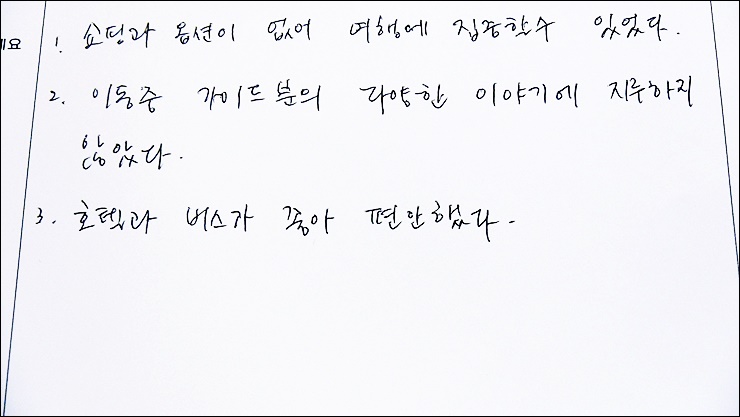 세요
1. 쇼핑과 옵션이 없어 여행에 집중할수 있었다.
2. 이동중 가이드분의 다양한 이야기에 지루하지
않았다.
3. 호텔과 버스가 좋아 편안했다.